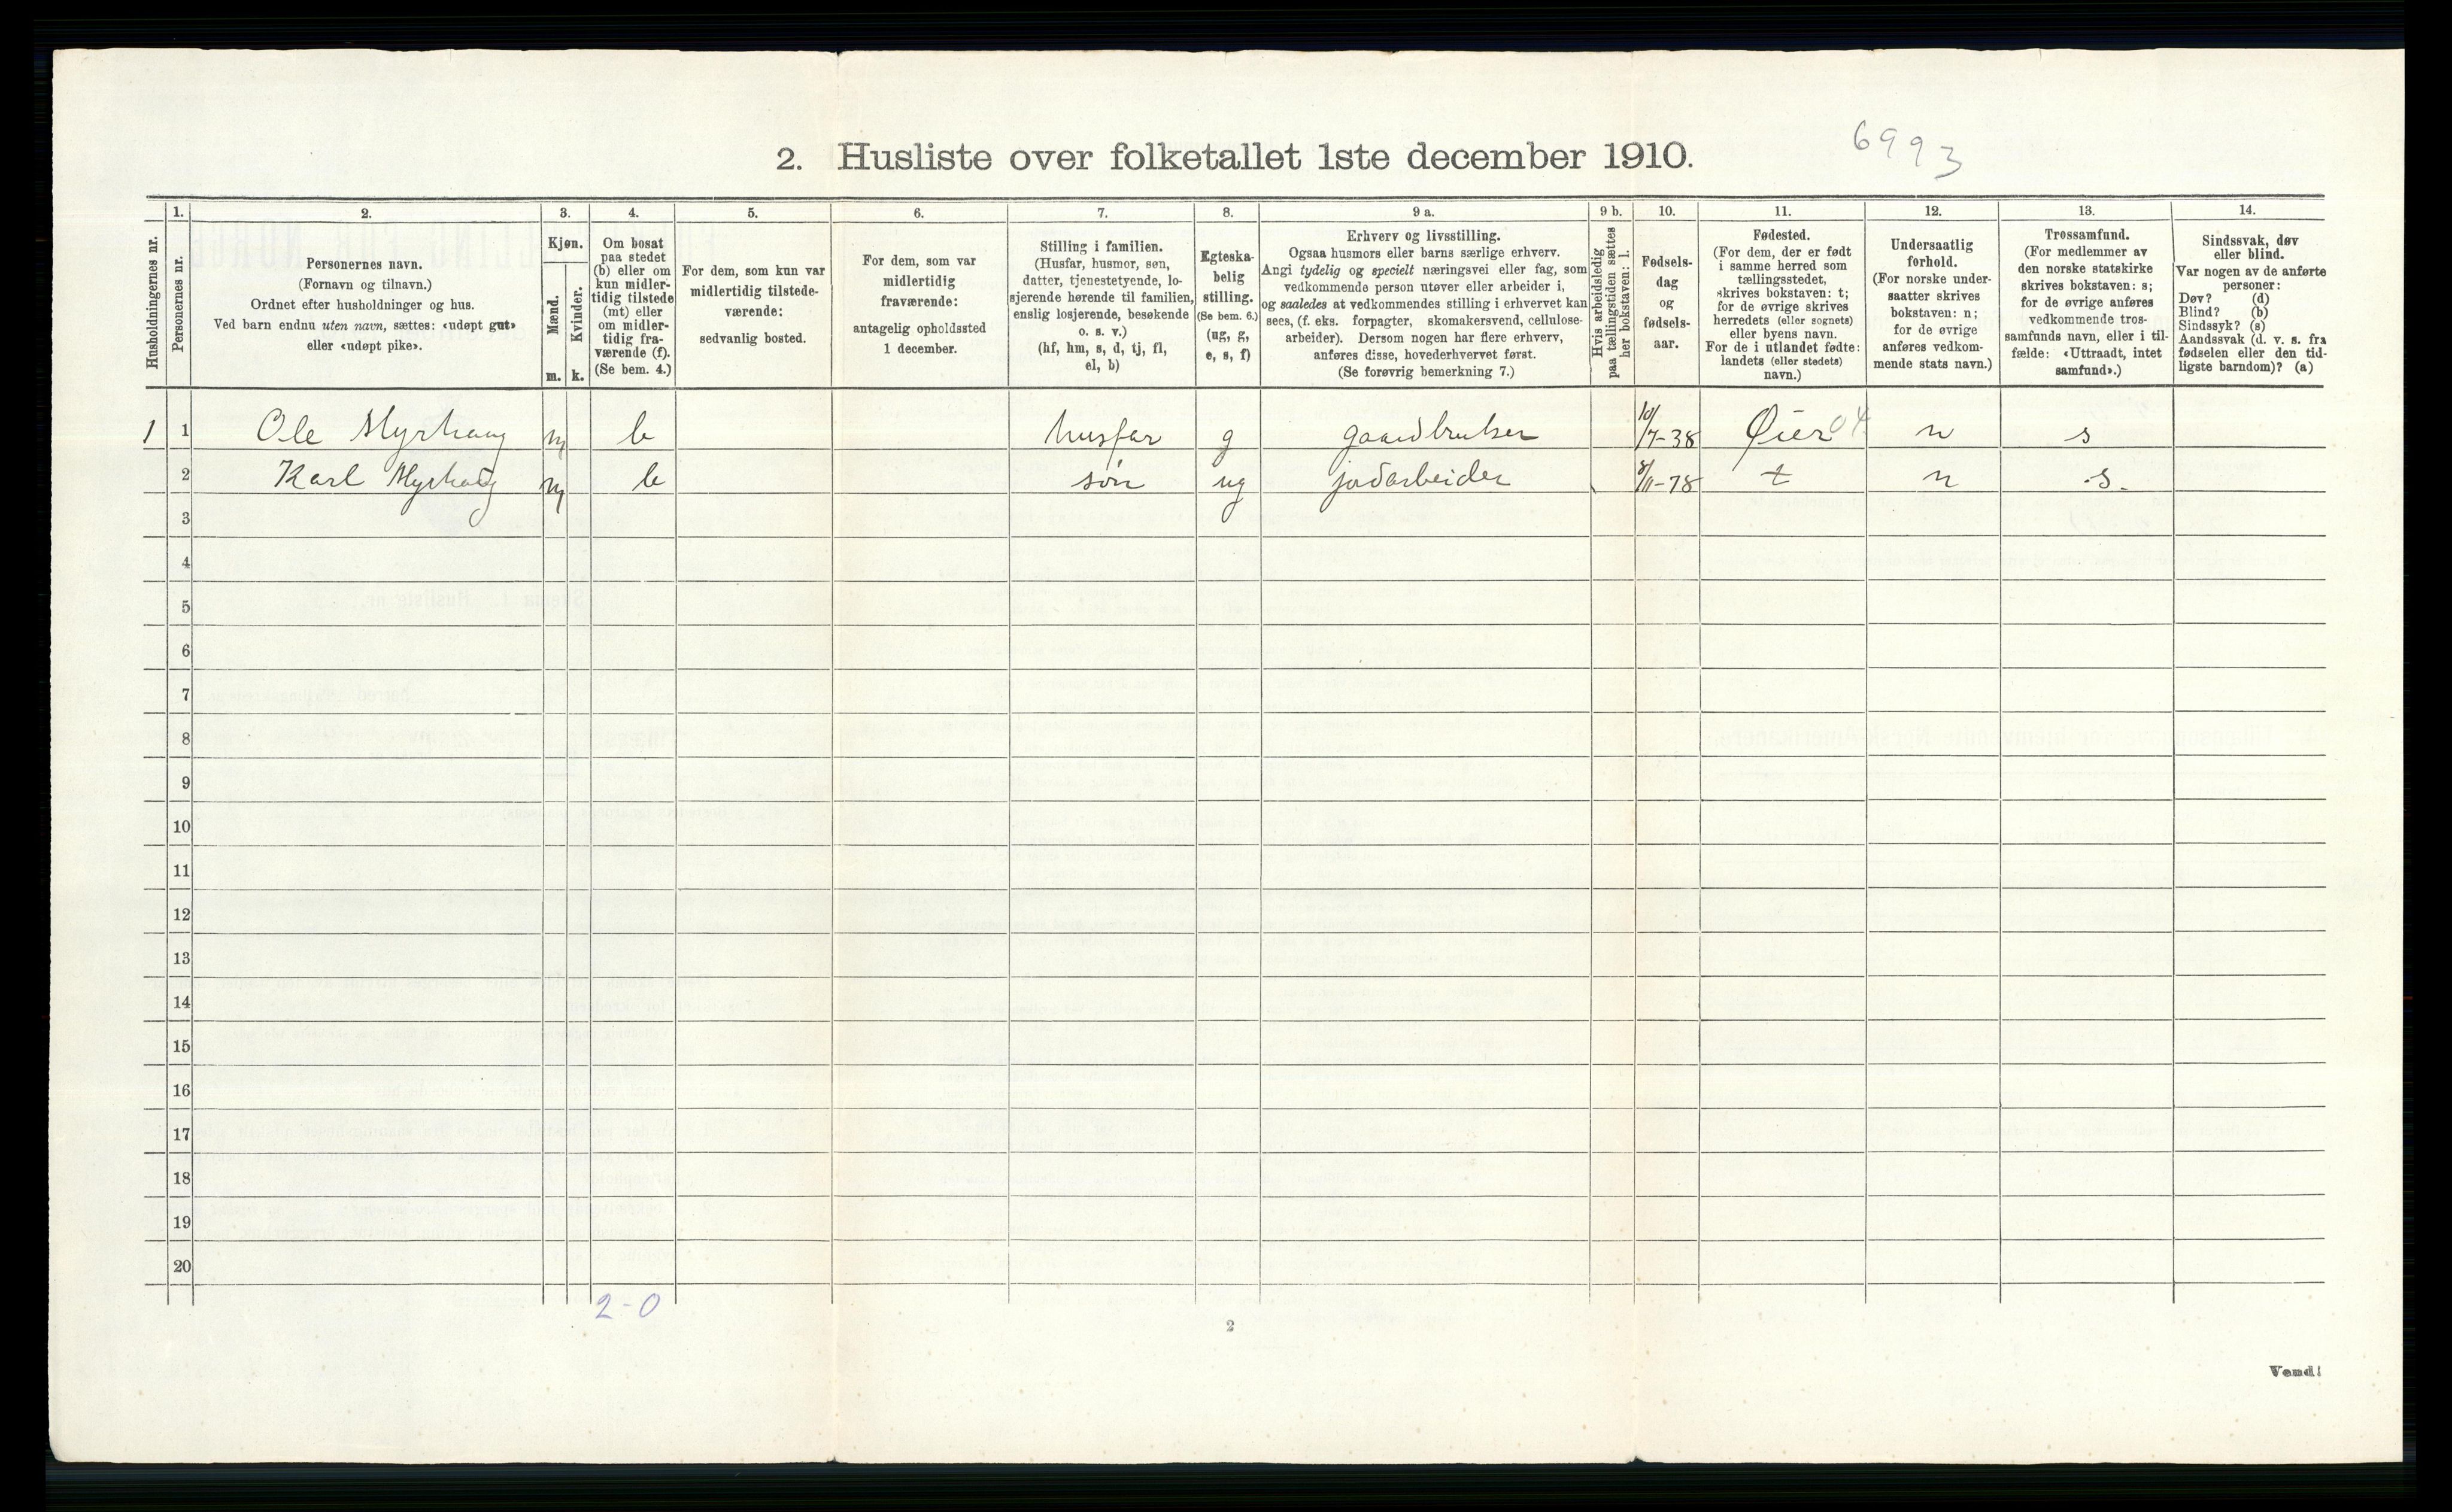 6993
2. Husliste over folketallet 1ste december 1910.
Husholdningernes nr.
1. Personernes nr.
2. Personernes navn.
(Fornavn og tilnavn.)
Ordnet efter husholdninger og hus.
Ved barn endnu uten navn, sættes: «udøpt gut»
eller «udøpt pike».
3. Kjøn.
Mænd. m.
Kvinder. k.
4. Om bosat
paa stedet
(b) eller om
kun midler-
tidig tilstede
(mt) eller
om midler-
tidig fra-
værende (f).
(Se bem. 4.)
5. For dem, som kun var
midlertidig tilstede-
værende:
sedvanlig bosted.
6. For dem, som var
midlertidig
fraværende:
antagelig opholdssted
1 december.
7. Stilling i familien.
(Husfar, husmor, søn,
datter, tjenestetyende, lo-
sjerende hørende til familien,
enslig losjerende, besøkende
o. s. v.)
(hf, hm, s, d, tj, fl,
el, b)
8. Egteska-
belig
stilling.
(Se bem. 6.)
(ug, g,
e, s, f)
9 a. Erhverv og livsstilling.
Ogsaa husmors eller barns særlige erhverv.
Angi tydelig og specielt næringsvei eller fag, som
vedkommende person utøver eller arbeider i,
og saaledes at vedkommendes stilling i erhvervet kan
sees, (f. eks. forpagter, skomakersvend, cellulose-
arbeider). Dersom nogen har flere erhverv,
anføres disse, hovederhvervet først.
(Se forøvrig bemerkning 7.)
9 b. Hvis arbeidsledig
paa tællingstiden sættes
her bokstaven: l.
10. Fødsels-
dag
og
fødsels-
aar.
11. Fødested.
(For dem, der er født
i samme herred som
tællingsstedet,
skrives bokstaven: t;
for de øvrige skrives
herredets (eller sognets)
eller byens navn.
For de i utlandet fødte:
landets (eller stedets)
navn.)
12. Undersaatlig
forhold.
(For norske under-
saatter skrives
bokstaven: n;
for de øvrige
anføres vedkom-
mende stats navn.)
13. Trossamfund.
(For medlemmer av
den norske statskirke
skrives bokstaven: s;
for de øvrige anføres
vedkommende tros-
samfunds navn, eller i til-
fælde: «Uttraadt, intet
samfund».)
14. Sindssvak, døv
eller blind.
Var nogen av de anførte
personer:
Døv? (d)
Blind? (b)
Sindssyk? (s)
Aandssvak (d. v. s. fra
fødselen eller den tid-
ligste barndom)? (a)
1 1 Ole Myrhaug m b husfar g gaardbruker 10/7-38 Øier 04 n s
2 Karl Myrhaug m b søn ug jordarbeider 8/11-78 t n s.
3
4
5
6
7
8
9
10
11
12
13
14
15
16
17
18
19
20
2-0
2
Vend!